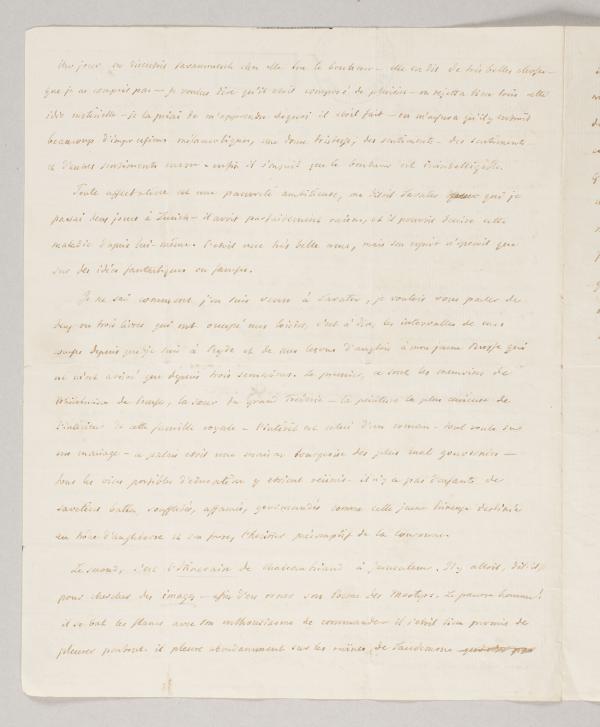 Un jour, on discutoit savamment chez elle sur le bonheur - elle en dit de très belles choses
que je ne compris pas - je voulus dire qu'il étoit composé de plaisirs - on rejetta bien loin cette
idée matérielle - je la priai de m'apprendre de quoi il étoit fait - on m'assura qu'il y entroit
beaucoup mélancoliques, une douce tristesse, des sentiments - des sentiments -
et d'autres sentiments encore - enfin il s'ensuit que le bonheur est inintelligible.
Toute affectation est une pauvreté ambitieuse, me disoit Lavater qui je
passai deux jours à Zurich - il avoit parfaitement raison, et il pouvoit décrire cette
maladie d'après lui-même. C'étoit une très belle ame, mais son esprit que
sur des idées fantastiques ou fausses.
Je ne sai comment j'en suis venu à Lavater, je voulois vous parler de
deux ou trois livres qui ont occupé mes loisirs, c'est à dire, les intervalles de mes
depuis que je suis à et de mes leçons d'anglois à mon jeune qui
ne m'est arrivé que depuis trois semaines. Le premier, ce sont les memoires de
Wilhelmine de Prusse, la sœur du Grand Fréderic - la peinture la plus curieuse de
l'intérieur de cette famille royale - l'intérêt est celui d'un roman - tout roule sur
son mariage - ce palais etoit une maison bourgeoise des plus mal gouvernées -
tous les vices possibles d'éducation y etoient réunis. il n'y a pas d'enfants de
savetiers battus, souffletés, affamés, gourmandés comme cette jeune Princesse destinée
au trône d'angleterre et son frere, l'héritier présomptif de la couronne.
Le second, c'est l'Itineraire de chateaubriand à Jerusalem. Il y alloit, dit-il,
pour chercher des images - afin d'en orner son Poeme des Martyrs. Le pauvre homme!
il se bat les flancs avec son enthousiasme de commande - il s'étoit bien promis de
pleurer partout. il pleure abondamment sur les ruines de Lacedemone